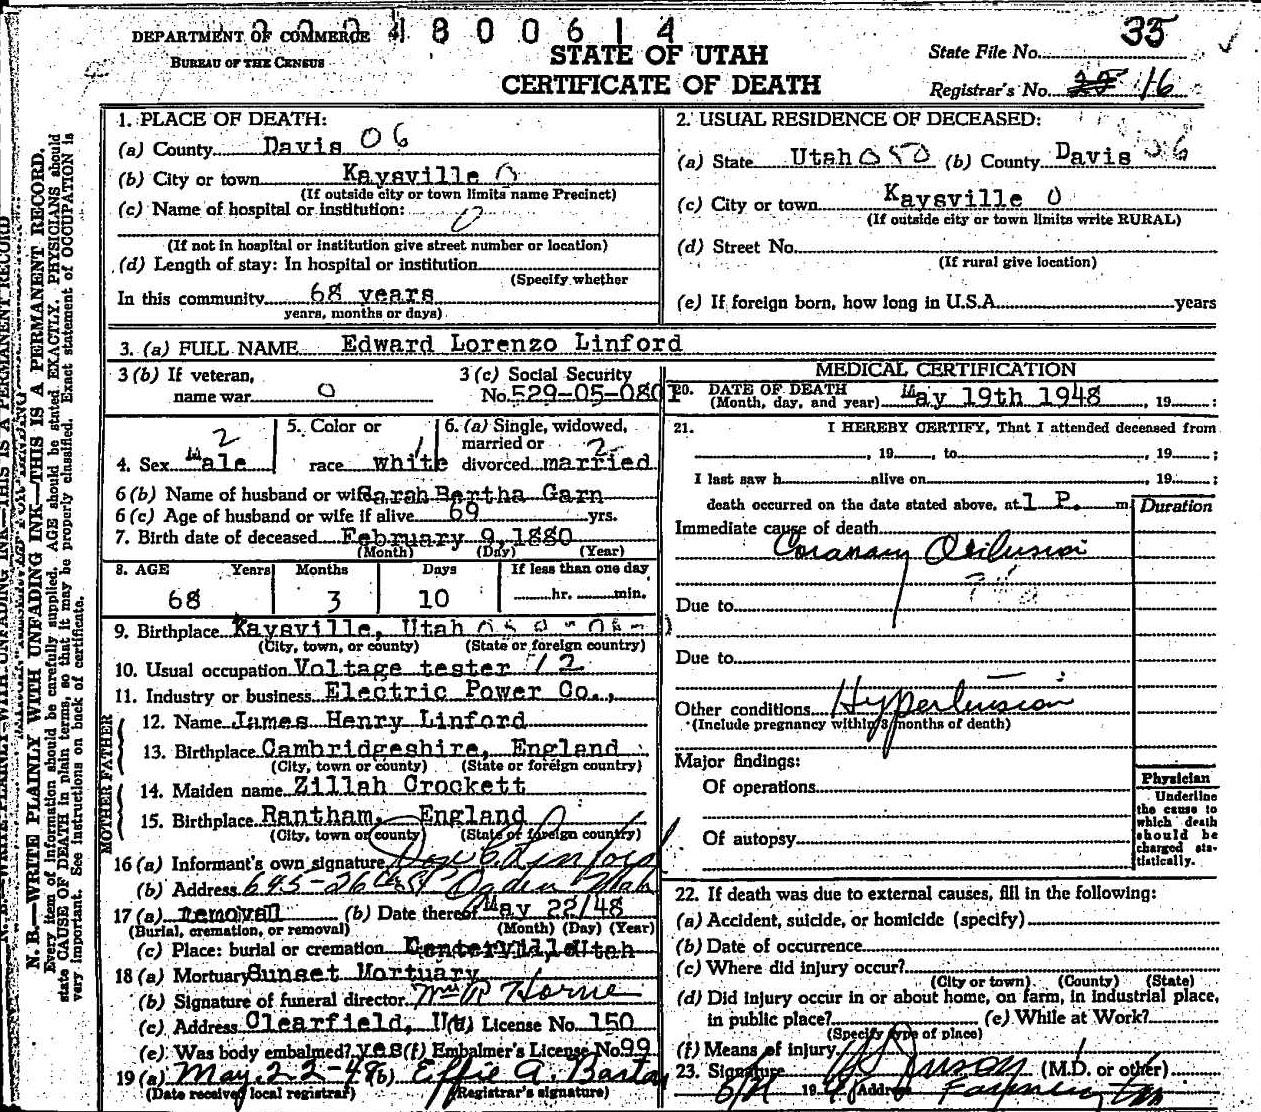 2 2 0 2 4 8 0 0 6 1 4
DEPARTMENT OF COMMERCE
BUREAU OF THE CENSUS
STATE OF UTAH
CERTIFICATE OF DEATH
State File No. 35
Registrar's No. 16
N. B.—WRITE PLAINLY WITH UNFADING INK—THIS IS A PERMANENT RECORD.
Every item of information should be carefully supplied. AGE should be stated EXACTLY. PHYSICIANS should
state CAUSE OF DEATH in plain terms, so that it may be properly classified. Exact statement of OCCUPATION is
very important. See instructions on back of certificate.
1. PLACE OF DEATH:
(a) County Davis 06
(b) City or town Kaysville 0
(If outside city or town limits name Precinct)
(c) Name of hospital or institution:
0
(If not in hospital or institution give street number or location)
(d) Length of stay: In hospital or institution
(Specify whether
In this community 68 years
years, months or days)
2. USUAL RESIDENCE OF DECEASED:
(a) State Utah 050 (b) County Davis 06
(c) City or town Kaysville 0
(If outside city or town limits write RURAL)
(d) Street No.
(If rural give location)
(e) If foreign born, how long in U.S.A. years
3. (a) FULL NAME Edward Lorenzo Linford
3 (b) If veteran,
name war 0
3 (c) Social Security
No. 529-05-0801
4. Sex Male 2
5. Color or
race white 1
6. (a) Single, widowed,
married or
divorced married 2
6 (b) Name of husband or wife Sarah Bertha Garn
6 (c) Age of husband or wife if alive 69 yrs.
7. Birth date of deceased February 9, 1880
(Month) (Day) (Year)
8. AGE Years Months Days If less than one day
68 3 10 hr. min.
9. Birthplace Kaysville, Utah
(City, town, or county) (State or foreign country)
10. Usual occupation Voltage tester 12
11. Industry or business Electric Power Co.,
FATHER
12. Name James Henry Linford
13. Birthplace Cambridgeshire, England
(City, town or county) (State or foreign country)
MOTHER
14. Maiden name Zillah Crockett
15. Birthplace Rantham, England
(City, town or county) (State or foreign country)
16 (a) Informant's own signature Linford
(b) Address 645-26th St Ogden Utah
17 (a) removal (b) Date thereof May 22/48
(Burial, cremation, or removal) (Month) (Day) (Year)
(c) Place: burial or cremation Centerville Utah
18 (a) Mortuary Sunset Mortuary
(b) Signature of funeral director Wm R Horne
(c) Address Clearfield, U (d) License No. 150
(e) Was body embalmed? yes (f) Embalmer's License No. 99
19 (a) May-22-48 (b) Effie A. Barton
(Date received local registrar) (Registrar's signature)
MEDICAL CERTIFICATION
20. DATE OF DEATH
(Month, day, and year) May 19th 1948, 19 :
21. I HEREBY CERTIFY, That I attended deceased from
, 19 , to , 19 ;
I last saw h alive on , 19 ;
death occurred on the date stated above, at 1 P. m
Duration
Immediate cause of death
Coranary Occlusion
Due to
Due to
Other conditions Hypertension
(Include pregnancy within 3 months of death)
Major findings:
Of operations
Of autopsy
Physician
Underline
the cause to
which death
should be
charged sta-
tistically.
22. If death was due to external causes, fill in the following:
(a) Accident, suicide, or homicide (specify)
(b) Date of occurrence
(c) Where did injury occur?
(City or town) (County) (State)
(d) Did injury occur in or about home, on farm, in industrial place,
in public place? (e) While at Work?
(Specify type of place)
(f) Means of injury
23. Signature (M.D. or other)
5/21 1948 Address Farmington